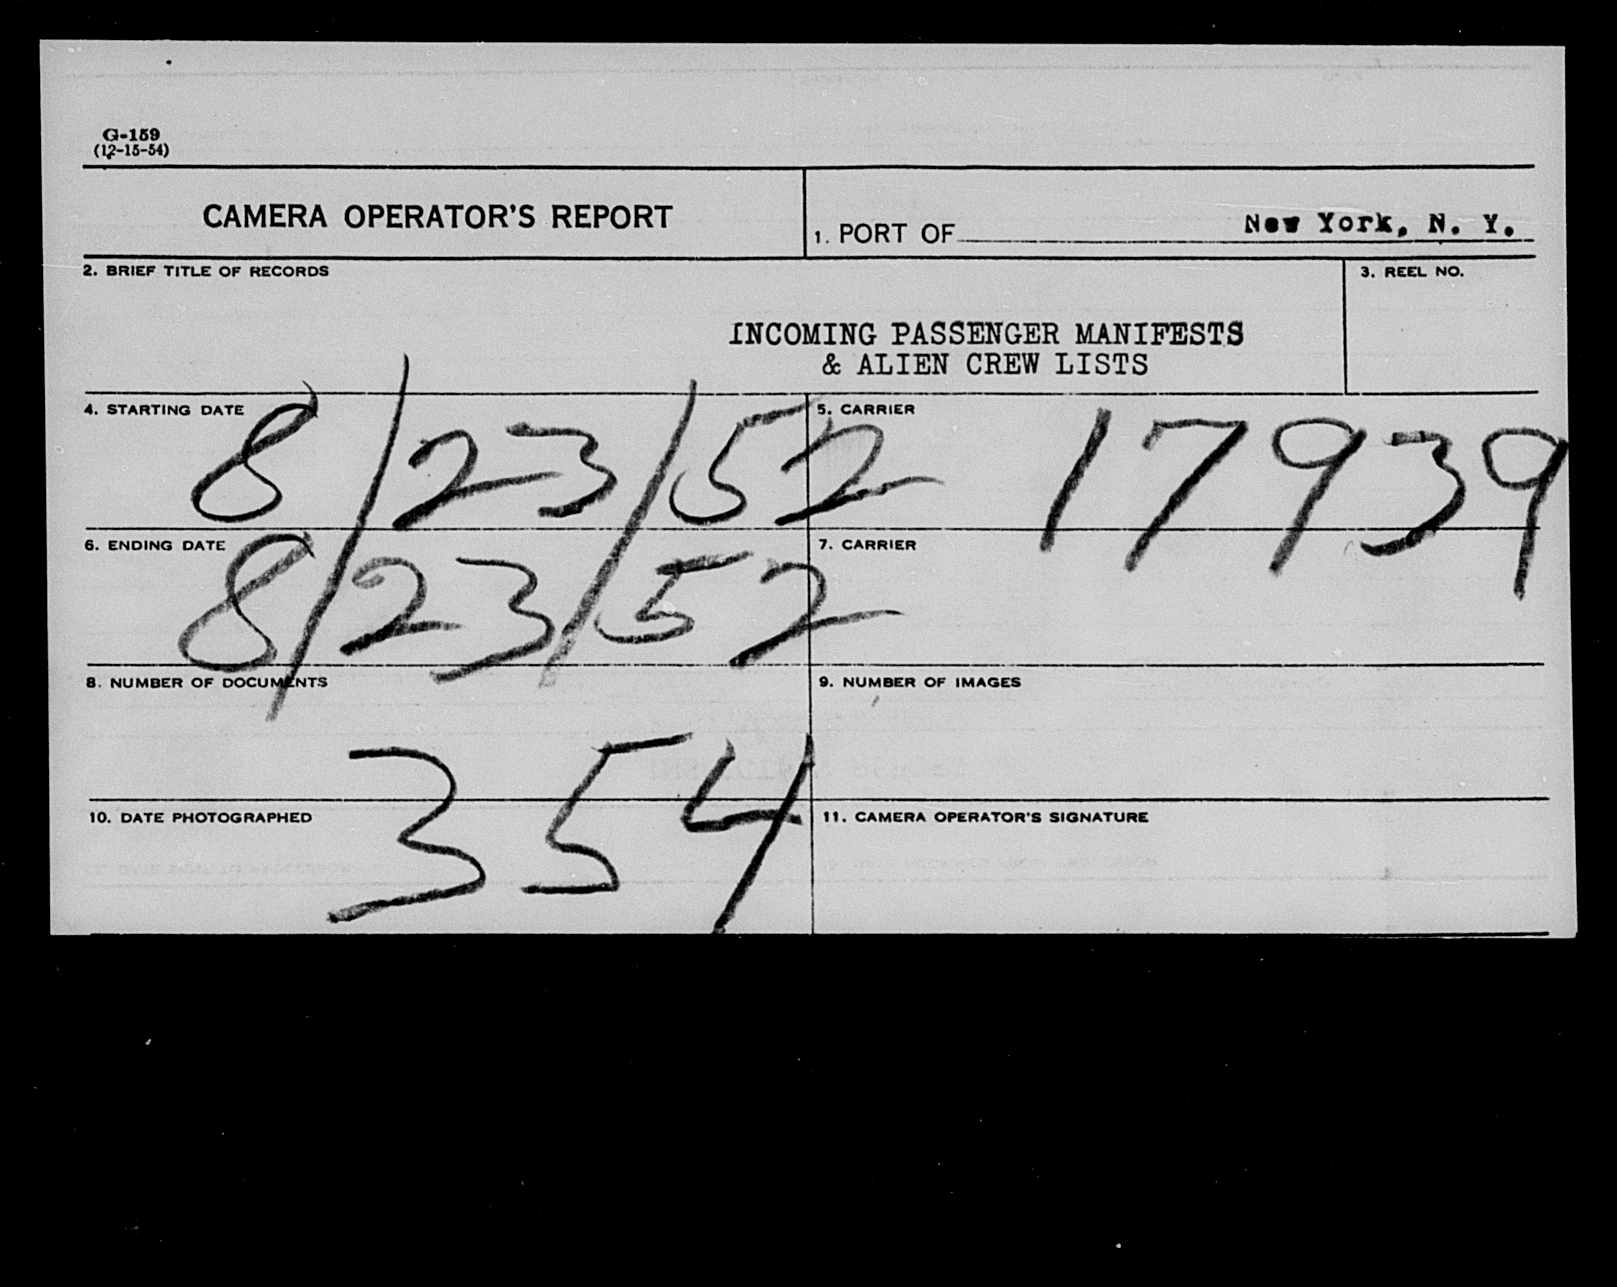 G-159
(12-15-54)
CAMERA OPERATOR'S REPORT
1. PORT OF New York, N. Y.
2. BRIEF TITLE OF RECORDS
3. REEL NO.
INCOMING PASSENGER MANIFESTS
& ALIEN CREW LISTS
4. STARTING DATE
8/23/52
5. CARRIER
17939
6. ENDING DATE
8/23/52
7. CARRIER
8. NUMBER OF DOCUMENTS
354
9. NUMBER OF IMAGES
10. DATE PHOTOGRAPHED
11. CAMERA OPERATOR'S SIGNATURE